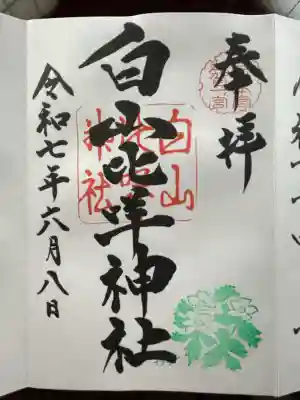 奉拝
白山比咩神社
白山
比咩
神社
令和七年六月八日